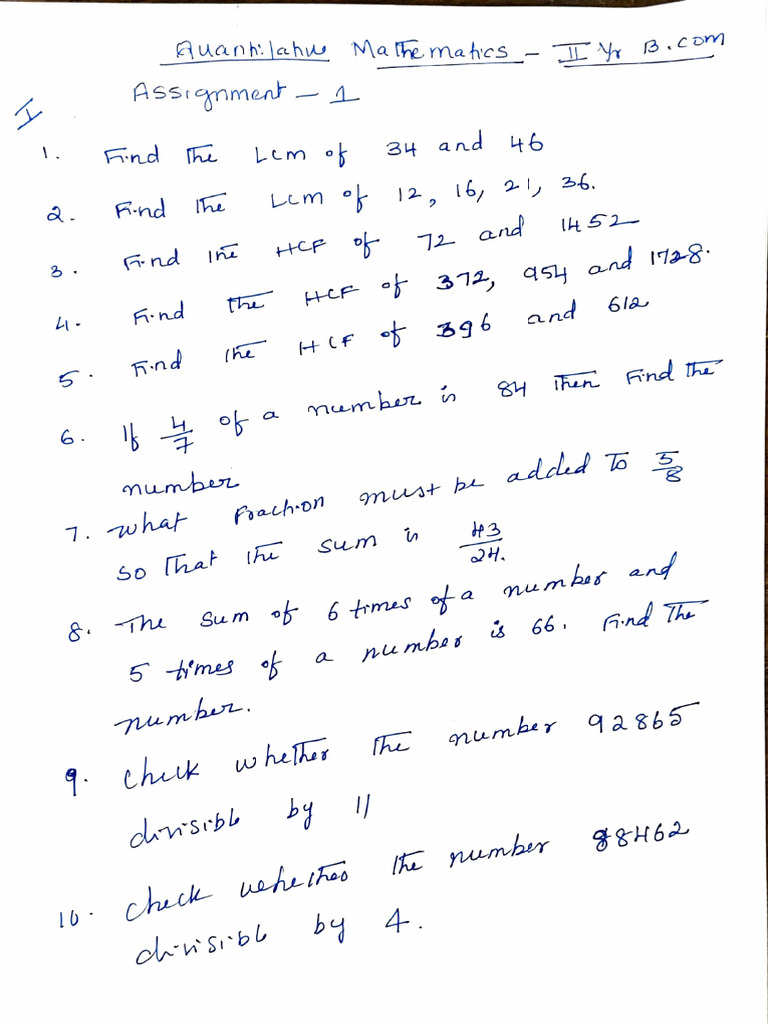 Quantitative Mathematics - II Yr B.com
Assignment - 1
I
1. Find the Lcm of 34 and 46
2. Find the Lcm of 12, 16, 21, 36.
3. Find the HCF of 72 and 1452
4. Find the HCF of 372, 954 and 1728.
5. Find the HCF of 396 and 612
6. If 4/7 of a number is 84 then Find the
number
7. what Fraction must be added to 5/8
so that the sum is 43/24.
8. The sum of 6 times of a number and
5 times of a number is 66. Find the
number.
9. check whether the number 92865
divisible by 11
10. check whether the number 88462
divisible by 4.